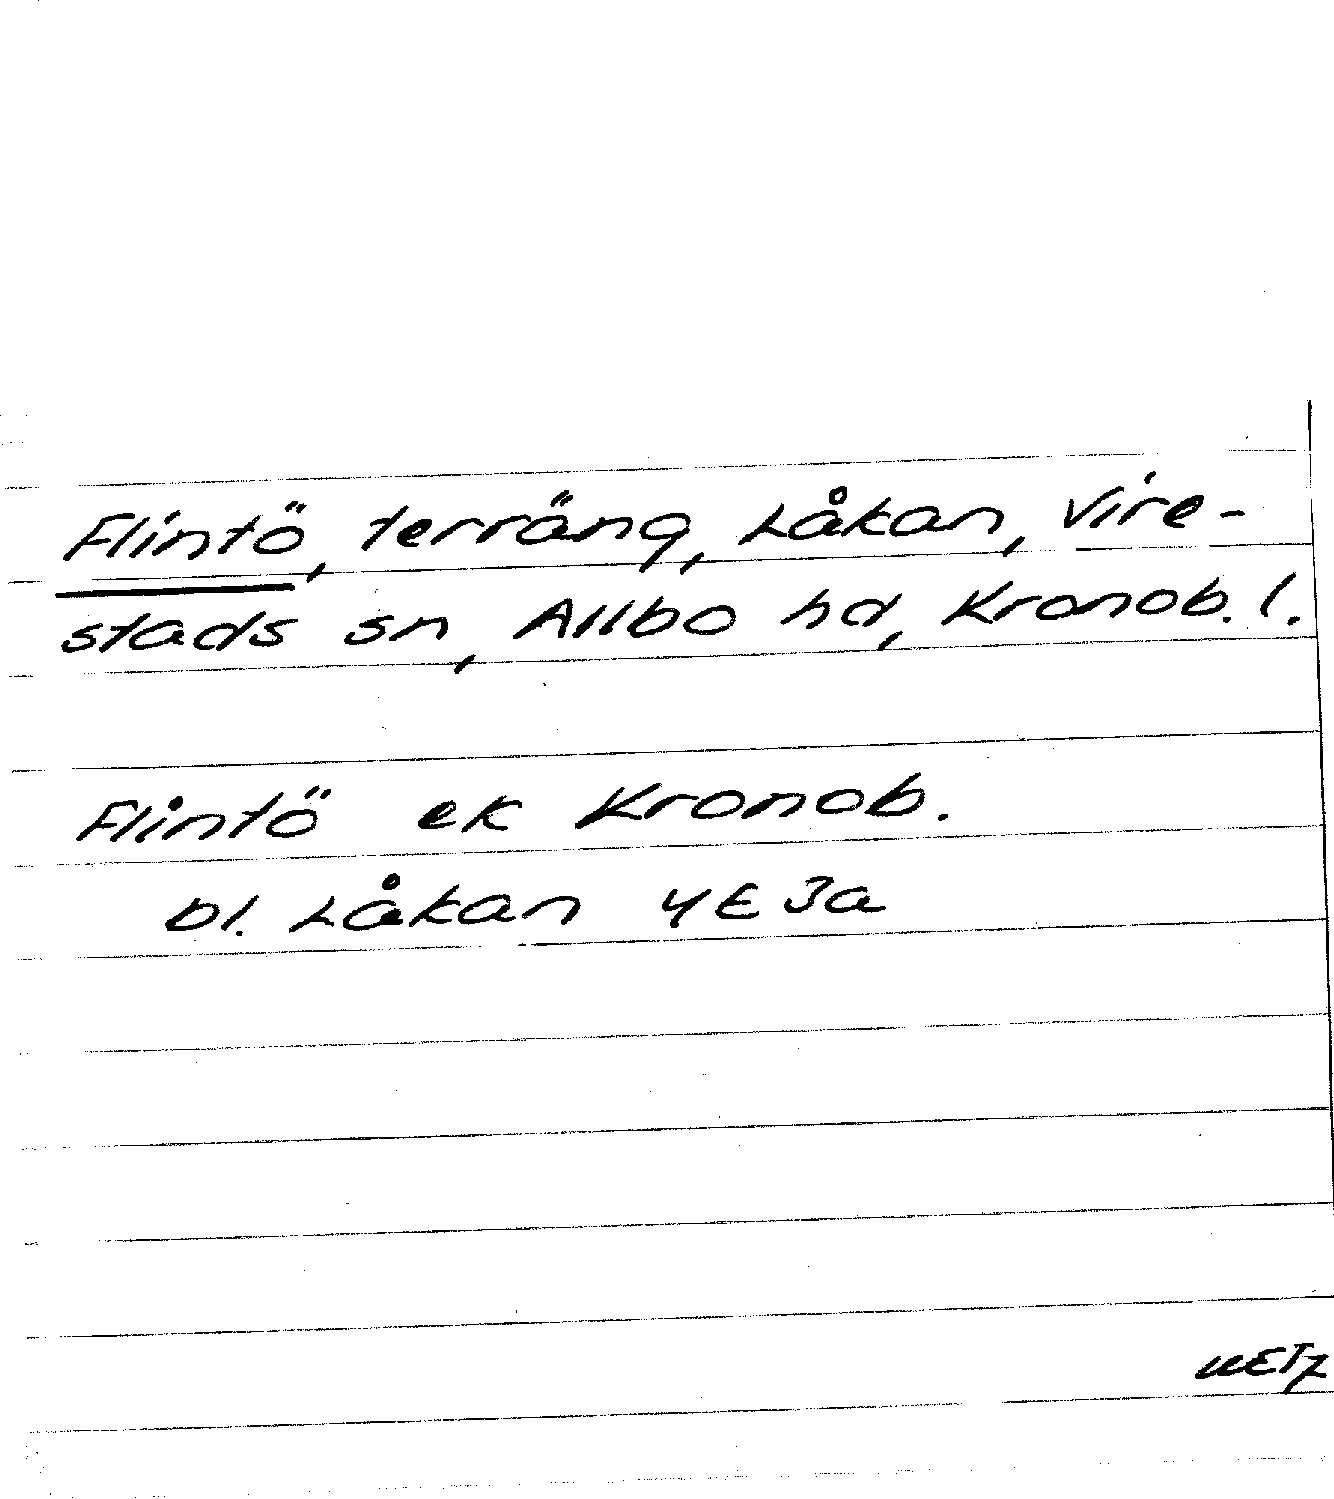 Flintö, terräng, Låkan, Vire-
stads sn, Allbo hd, Kronob. l.
Flintö ek Kronob.
bl. Låkan 4E3a